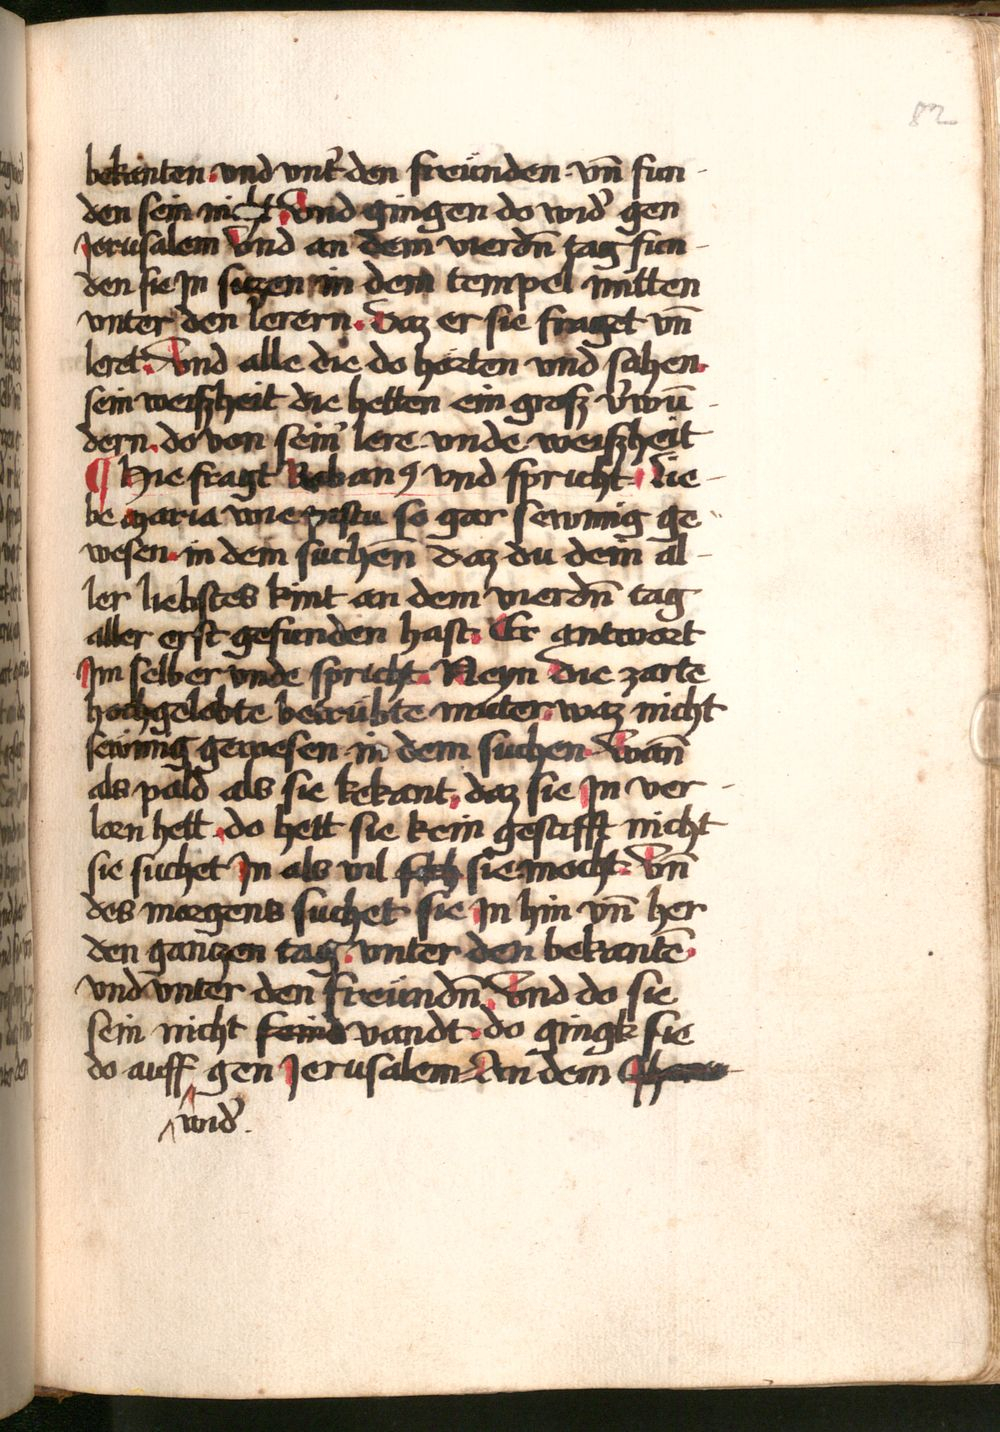 82
bekanten. vnd vnt̓ den freünden. vn̄ fun
den sein nicht. Vnd gingen do wid̓ gen
Jerusalem Vnd an dem vierdn̄ tag fun
den sie Jn siczen in dem tempel mitten
vnter den lerern. Daz er sie fraget vn̄
leret. Vnd alle die do horten vnd sahen.
sein weißheit die hetten ein groß v̓wū
dern. do von sein̓ lere vnde weißheit
¶ Hie fragt Rabanꝯ vnd spricht. Lie
be maria wie pistu so gar sewmig ge
wesen. in dem suchen̄ daz du dein al
ler liebstes kint an dem vierdn̄ tag
aller erst gefunden hast. Er antwort
Jm selber vnde spricht. Neyn die zarte
hochgelobte betrubte muter. waz nicht
sewmig gewesen in dem suchen. Wan̄
als pald als sie kekant. daz sie Jn ver
lorn hett. do hett sie kein gestifft nicht
sie suchet Jn als vil sie mocht. Vn̄
des morgens suchet sie Jn hin vn̄ her
den ganczen tag. vnter den bekantē.
vnd vnter den freündn̄. Vnd do sie
sein nicht vandt. do gingk sie
do auff gen Jerusalem. An dem
wid̓.